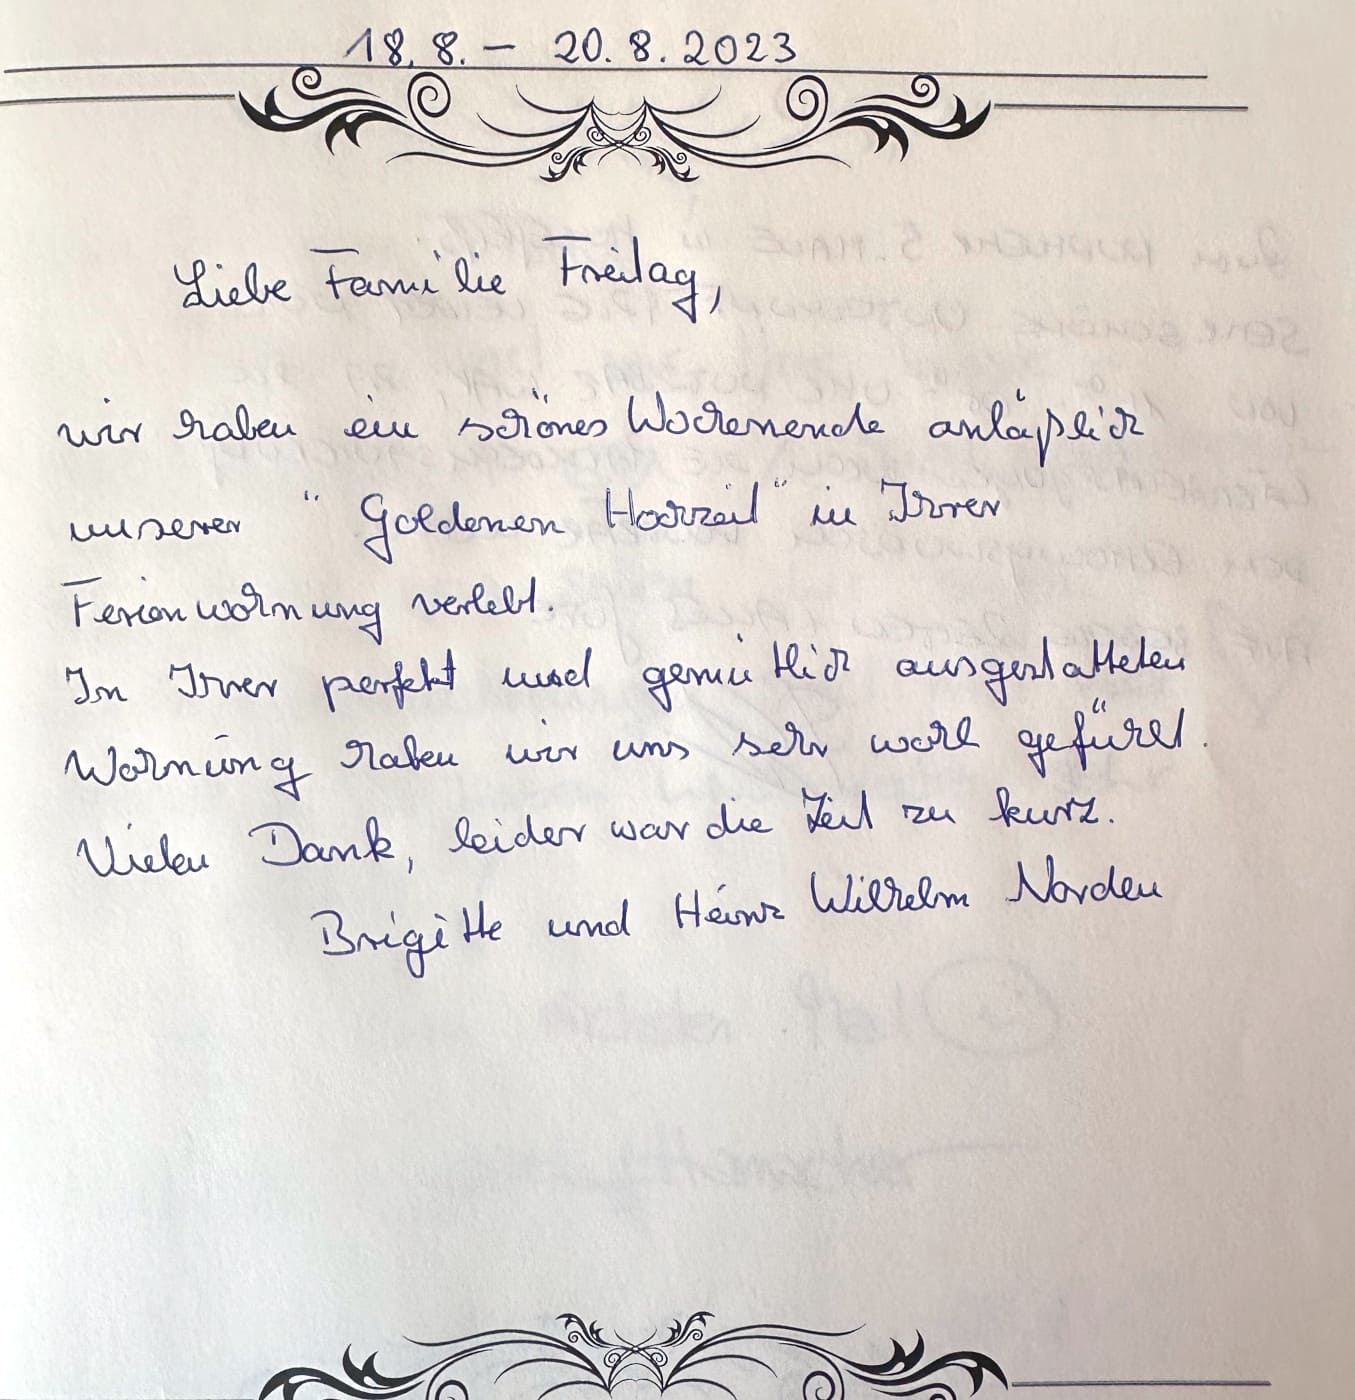 18.8. - 20.8.2023
Liebe Familie Freitag,
wir haben ein schönes Wochenende anläßlich
unserer "Goldenen Hochzeit" in Ihrer
Ferienwohnung verlebt.
In Ihrer perfekt und gemütlich ausgestatteten
Wohnung haben wir uns sehr wohl gefühlt.
Vielen Dank, leider war die Zeit zu kurz.
Brigitte und Heinz Wilhelm Norden